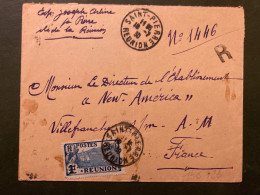 Exp. Joseph
St Pierre
Ile de la Réunion
SAINT-PIERRE
REUNION
N° 1446
R
Monsieur Le Directeur de l'Etablissement
"New-América"
Villefranche s/m - A-M
France
POSTES
1F
REUNION
SAINT-PIERRE
REUNION